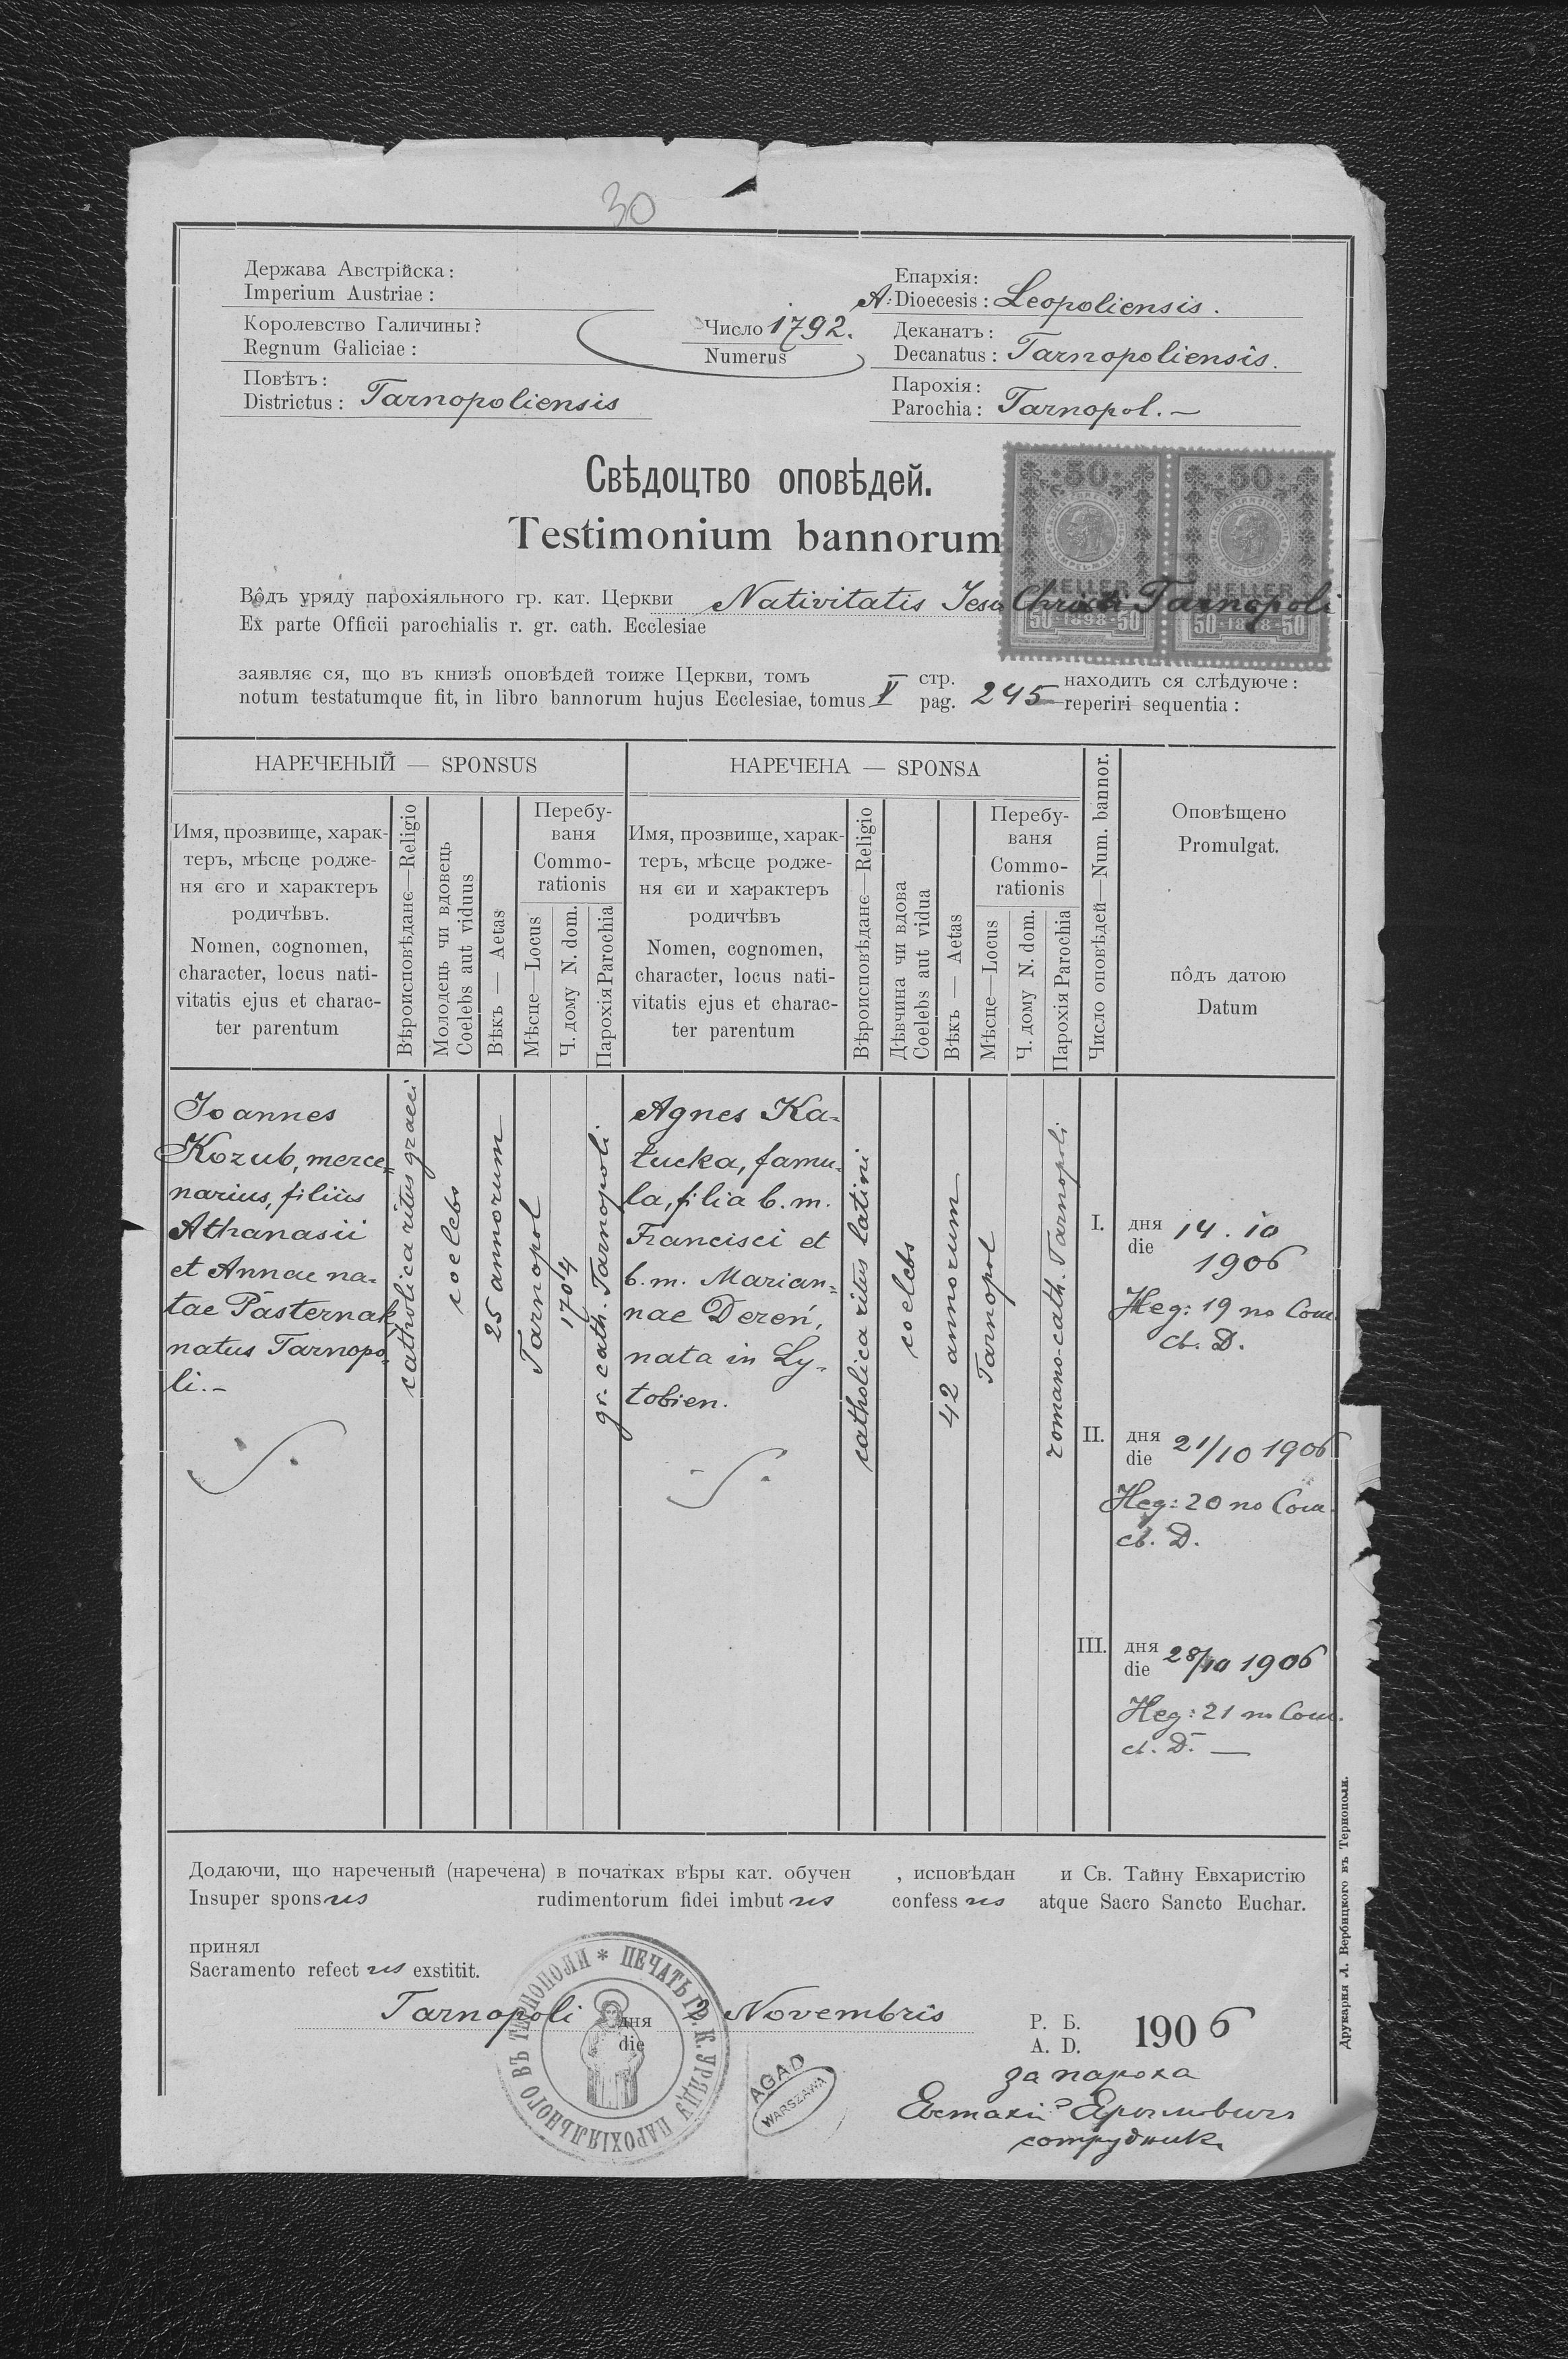 30
Держава Австрійска:
Imperium Austriae:
Королевство Галичины?
Regnum Galiciae:
Повѣтъ:
Districtus: Tarnopoliensis
Число 1792.
Numerus
Епархія:
A: Dioecesis: Leopoliensis.
Деканатъ:
Decanatus: Tarnopoliensis.
Парохія:
Parochia: Tarnopol. —
Свѣдоцтво оповѣдей.
Testimonium bannorum
50 50
HELLER HELLER
50 · 1898 · 50 50 · 1898 · 50
Вôдъ уряду парохіяльного гр. кат. Церкви Nativitatis Jesu Christi Tarnopoli
Ex parte Officii parochialis r. gr. cath. Ecclesiae
заявляє ся, що въ книзѣ оповѣдей тоиже Церкви, томъ стр. находить ся слѣдуюче:
notum testatumque fit, in libro bannorum hujus Ecclesiae, tomus V pag. 245 reperiri sequentia:
НАРЕЧЕНЫЙ — SPONSUS
Имя, прозвище, харак-
теръ, мѣсце родже-
ня єго и характеръ
родичѣвъ.
Nomen, cognomen,
character, locus nati-
vitatis ejus et charac-
ter parentum
Вѣроисповѣданє—Religio
Молодець чи вдовець
Coelebs aut viduus
Вѣкъ — Aetas
Перебу-
ваня
Commo-
rationis
Мѣсце—Locus
Ч. дому N. dom.
Парохія Parochia
НАРЕЧЕНА — SPONSA
Имя, прозвище, харак-
теръ, мѣсце родже-
ня єи и характеръ
родичѣвъ
Nomen, cognomen,
character, locus nati-
vitatis ejus et charac-
ter parentum
Вѣроисповѣданє—Religio
Дѣвчина чи вдова
Coelebs aut vidua
Вѣкъ — Aetas
Перебу-
ваня
Commo-
rationis
Мѣсце—Locus
Ч. дому N. dom.
Парохія Parochia
Число оповѣдей—Num. bannor.
Оповѣщено
Promulgat.
пôдъ датою
Datum
Joannes
Kozub, merce-
narius, filius
Athanasii
et Annae na-
tae Pasternak
natus Tarnopo-
li. -
catholica ritus graeci
coelebs
25 annorum
Tarnopol
1704
gr. cath. Tarnopoli
Agnes Ka-
łucka, famu-
la, filia b. m.
Francisci et
b. m. Marian-
nae Dereń,
nata in Ly-
tobien.
catholica ritus latini
coelebs
42 annorum
Tarnopol
romano-cath. Tarnopoli
I. дня
die 14. 10
1906
Нед: 19 по Сош.
св. Д.
II. дня
die 21/10 1906
Нед: 20 по Сош.
св. Д.
III. дня
die 28/10 1906
Нед: 21 по Сош.
св. Д. —
Додаючи, що нареченый (наречена) в початках вѣры кат. обучен , исповѣдан и Св. Тайну Евхаристію
Insuper sponsus rudimentorum fidei imbutus confessus atque Sacro Sancto Euchar.
принял
Sacramento refectus exstitit.
Tarnopoli дня
die 2 Novembris Р. Б.
A. D. 1906
* ПЕЧАТЬ ГР. К. УРЯДУ ПАРОХІЯЛЬНОГО ВЪ ТЕРНОПОЛИ
AGAD
WARSZAWA
за пароха
сотрудникъ
Друкарня Л. Вербицкого въ Тернополи.